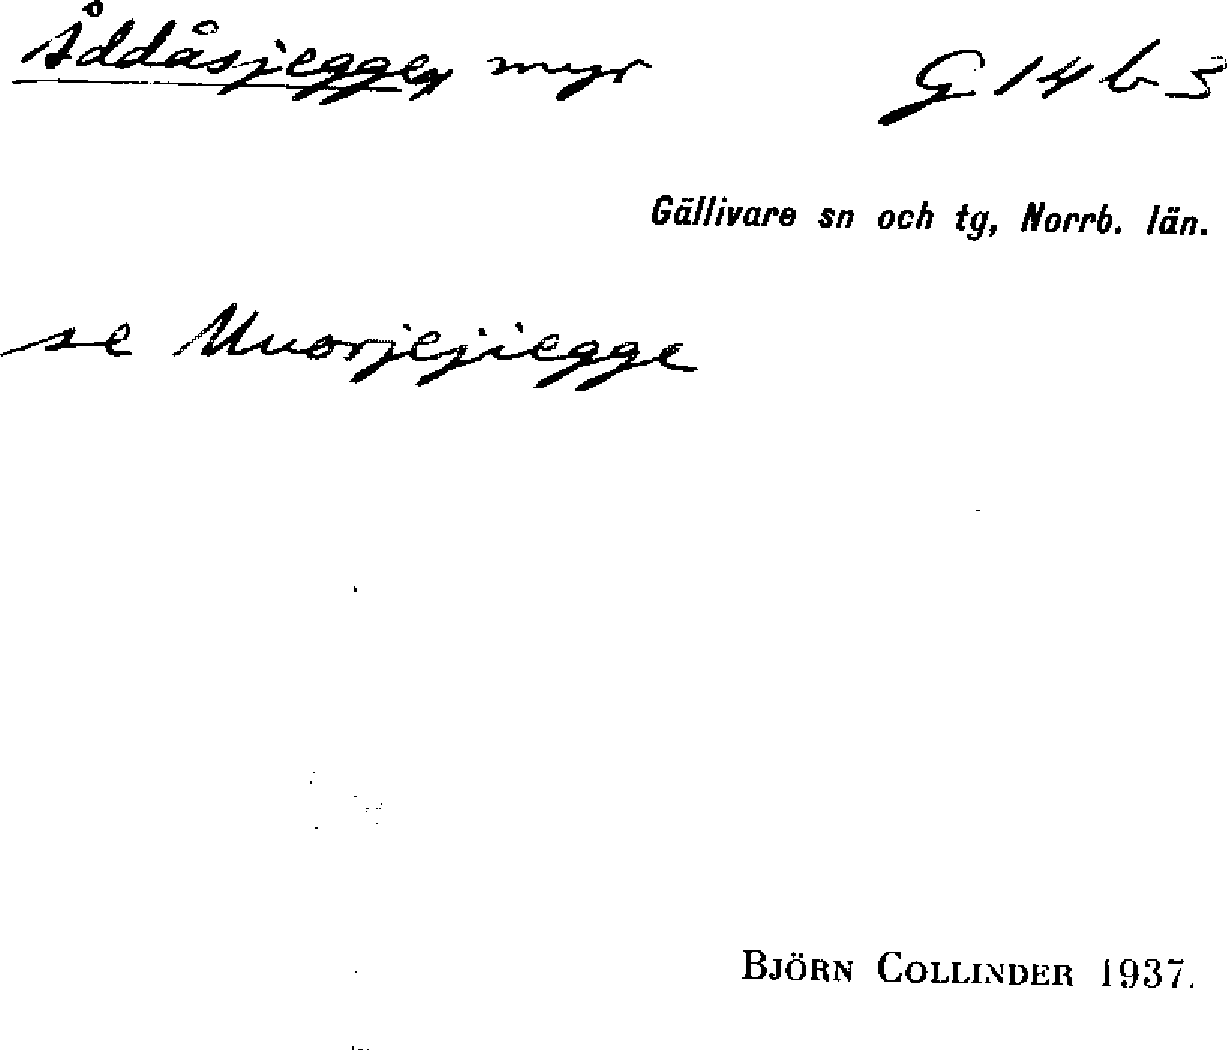 Åddåsjegge, myr G 14 b 3
Gällivare sn och tg, Norrb. län.
se Muorjejiegge
BJÖRN COLLINDER 1937.